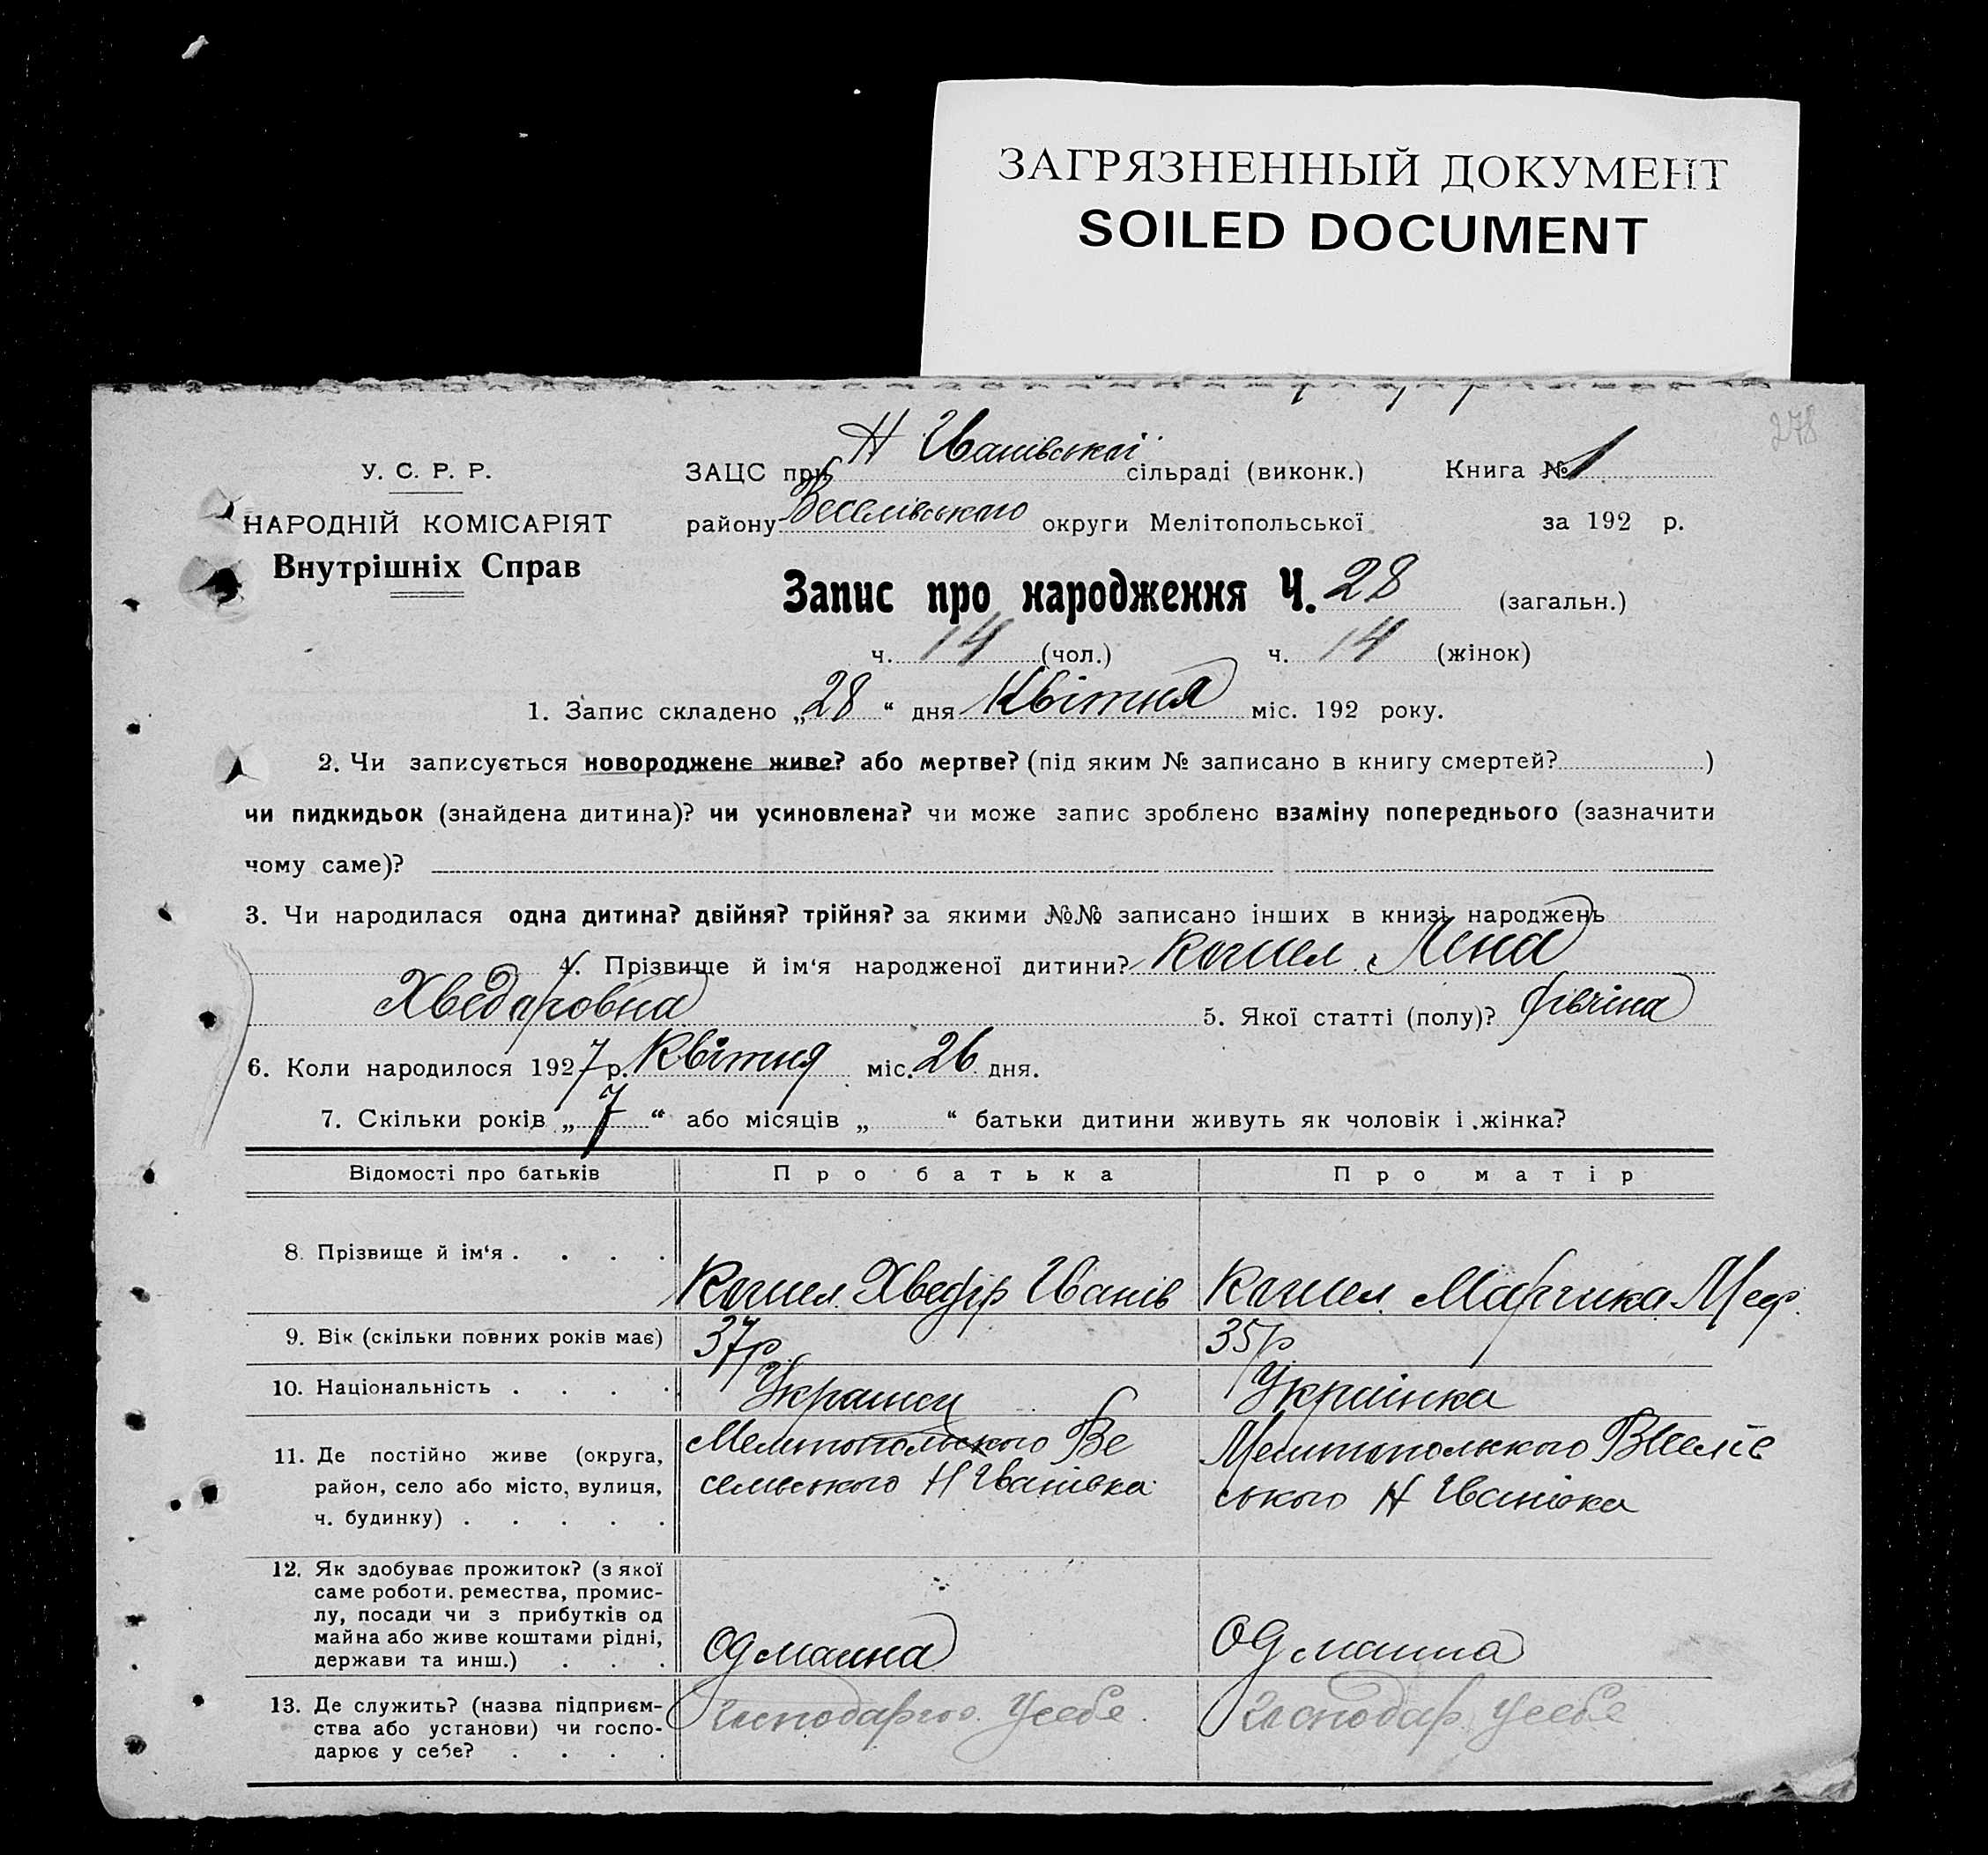 ЗАГРЯЗНЕННЫЙ ДОКУМЕНТ
SOILED DOCUMENT
278
У. С. Р. Р.
НАРОДНІЙ КОМІСАРІЯТ
Внутрішніх Справ
ЗАЦС при Н Иванівської сільраді (виконк.) Книга № 1
району Веселівського округи Мелітопольської за 192 р.
Запис про народження Ч. 28 (загальн.)
ч. 14 (чол.) ч. 14 (жінок)
1. Запис складено „28“ дня Квітня міс. 192 року.
2. Чи записується новороджене живе? або мертве? (під яким № записано в книгу смертей? )
чи пидкидьок (знайдена дитина)? чи усиновлена? чи може запис зроблено взаміну попереднього (зазначити
чому саме)?
3. Чи народилася одна дитина? двійня? трійня? за якими №№ записано інших в книзі народжень
4. Прізвище й ім‘я народженої дитини? Лена
Хведоровна 5. Якої статті (полу)? дівчіна
6. Коли народилося 1927 р. Квітня міс. 26 дня.
7. Скільки років „7“ або місяців „ “ батьки дитини живуть як чоловік і жінка?
Відомості про батьків Про батька Про матір
8. Прізвище й ім‘я . . . . Хведір Иванів
9. Вік (скільки повних років має) 37р 35р
10. Національність . . . . Украинец Украінка
11. Де постійно живе (округа, район, село або місто, вулиця, ч. будинку) . . . . .
Мелитопольского Ве
сельвського Н Иванівка
Мелитопольского
ського Н Иванівка
12. Як здобуває прожиток? (з якої
саме роботи. ремества, промис-
лу, посади чи з прибутків од
майна або живе коштами рідні,
держави та инш.) . . . Од маина Од маина
13. Де служить? (назва підприєм-
ства або установи) чи госпо-
дарює у себе? . . . . Господарює Усебе Господар Усебе